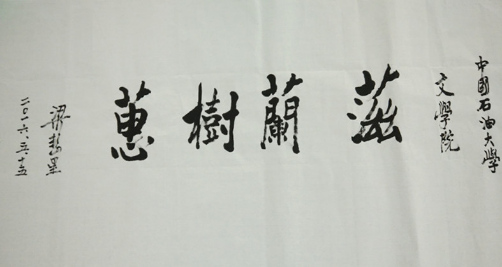 中國石油大学
文學院
滋蘭樹蕙
二〇一六.三.十五